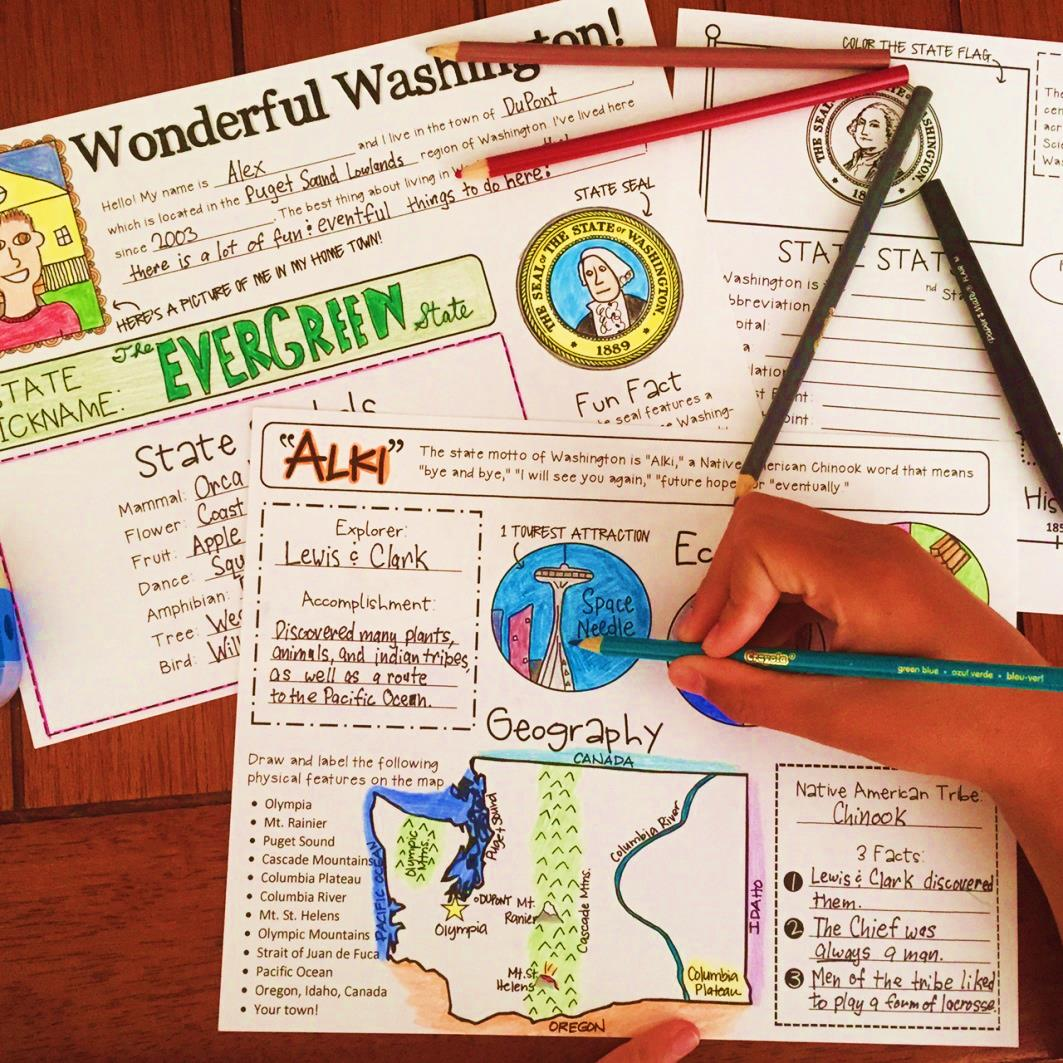 Wonderful Washington!
Hello! My name is Alex and I live in the town of DuPont
which is located in the Puget Sound Lowlands region of Washington. I've lived here
since 2003. The best thing about living in
there is a lot of fun & eventful things to do here!
HERE'S A PICTURE OF ME IN MY HOME TOWN!
STATE SEAL
THE SEAL OF THE STATE OF WASHINGTON.
1889
The EVERGREEN State
STATE
NICKNAME:
Fun Fact
seal features a
Washing-
State
Mammal: Orca
Flower: Coast
Fruit: Apple
Dance: Squ
Amphibian:
Tree: Wes
Bird: Will
COLOR THE STATE FLAG
THE SEAL OF THE WASHINGTON.
STATE STAT
Washington is nd Sta
bbreviation
pital:
nt:
Point:
His
185
"ALKI"
The state motto of Washington is "Alki," a Native American Chinook word that means
"bye and bye," "I will see you again," "future hope" or "eventually."
Explorer:
Lewis & Clark
Accomplishment:
Discovered many plants,
animals, and indian tribes,
as well as a route
to the Pacific Ocean.
1 TOUREST ATTRACTION
Space
Needle
Ec
Crayola
green blue • azul verde • bleu-vert
Geography
Draw and label the following
physical features on the map
• Olympia
• Mt. Rainier
• Puget Sound
• Cascade Mountains
• Columbia Plateau
• Columbia River
• Mt. St. Helens
• Olympic Mountains
• Strait of Juan de Fuca
• Pacific Ocean
• Oregon, Idaho, Canada
• Your town!
CANADA
PACIFIC OCEAN
Olympic
Mtns.
Puget Sound
DUPONT
Olympia
Mt.
Ranier
Mt. St.
Helens
Cascade Mtns.
Columbia River
Columbia
Plateau
IDAHO
OREGON
Native American Tribe:
Chinook
3 Facts:
1 Lewis & Clark discovered
them.
2 The Chief was
always a man.
3 Men of the tribe liked
to play a form of lacrosse.